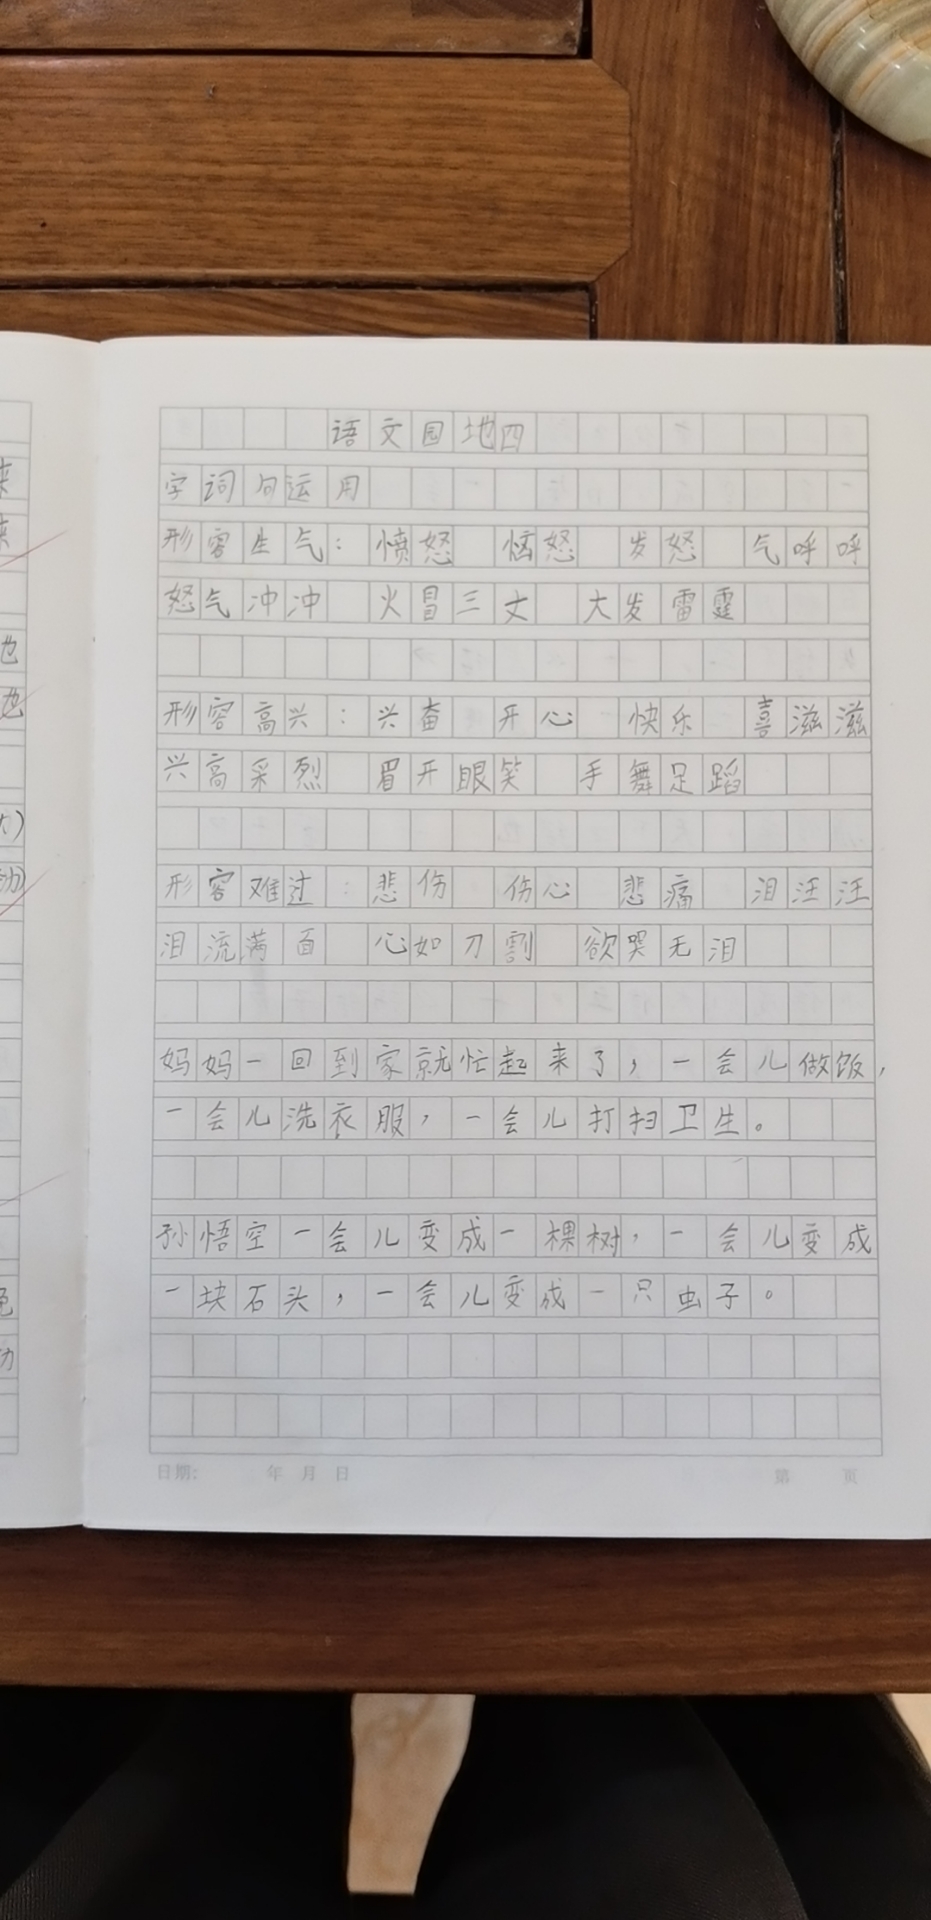 语文园地四
字词句运用
形容生气：愤怒 恼怒 发怒 气呼呼
怒气冲冲 火冒三丈 大发雷霆
形容高兴：兴奋 开心 快乐 喜滋滋
兴高采烈 眉开眼笑 手舞足蹈
形容难过：悲伤 伤心 悲痛 泪汪汪
泪流满面 心如刀割 欲哭无泪
妈妈一回到家就忙起来了，一会儿做饭，
一会儿洗衣服，一会儿打扫卫生。
孙悟空一会儿变成一棵树，一会儿变成
一块石头，一会儿变成一只虫子。
日期： 年 月 日 第 页